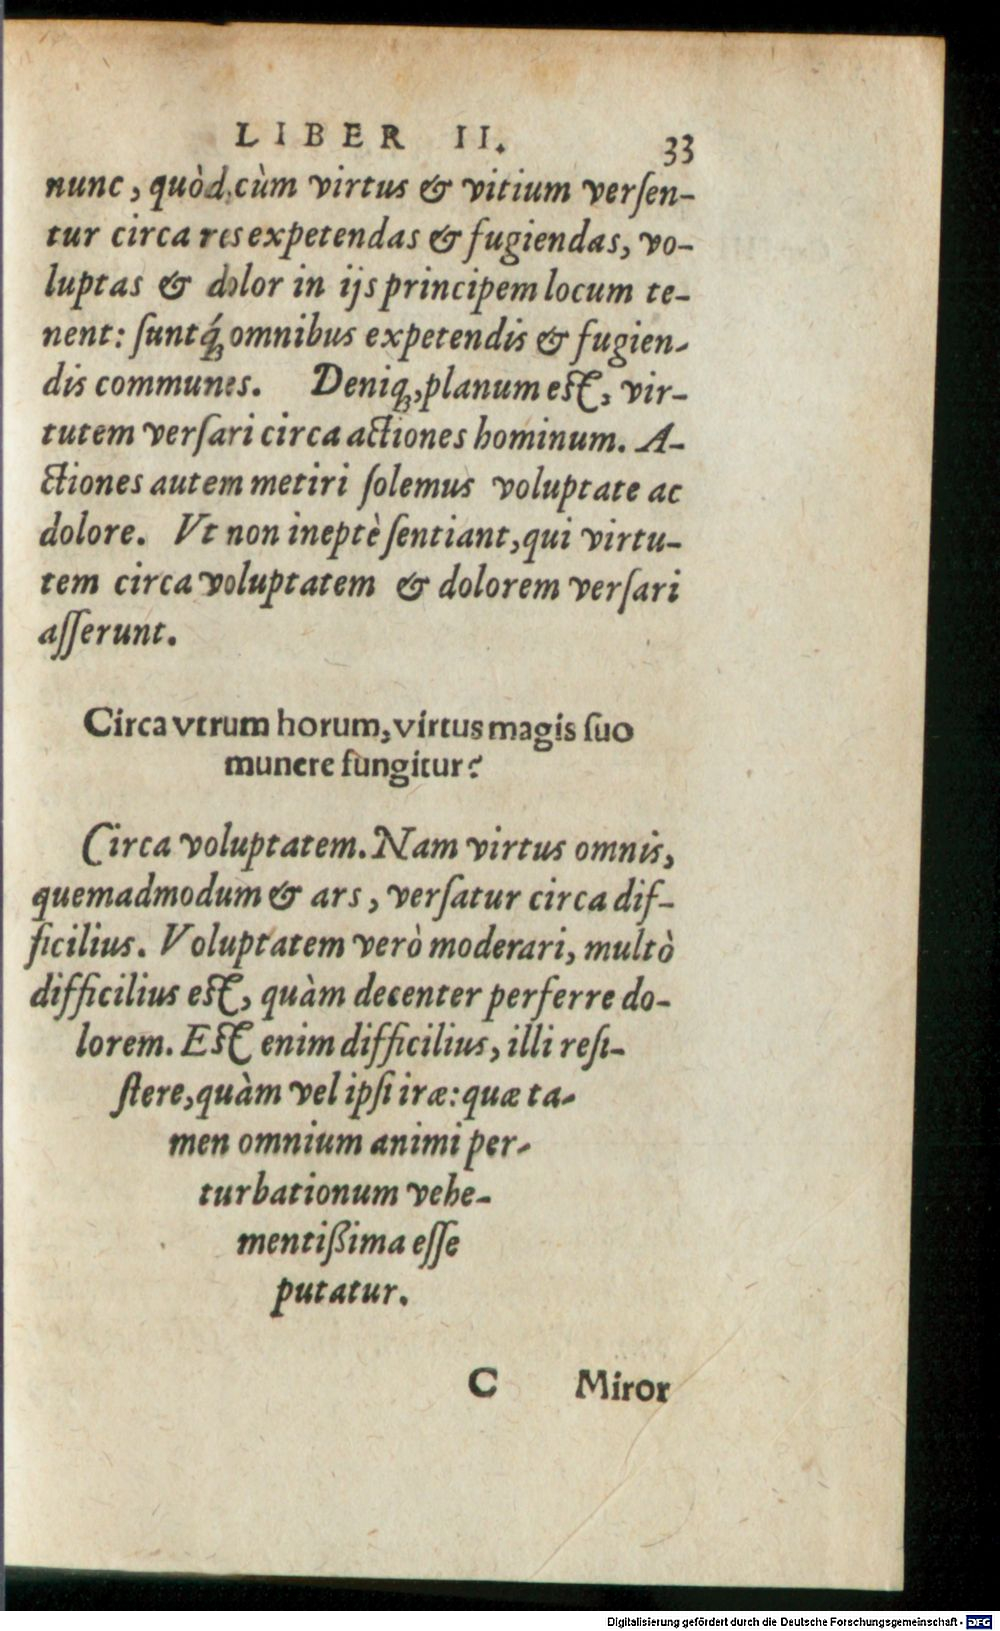 LIBER II. 33
nunc, quòd cùm virtus & vitium verſen-
tur circa res expetendas & fugiendas, vo-
luptas & dolor in ijs principem locum te-
nent: ſuntq́ꝫ omnibus expetendis & fugien-
dis communes. Deniqꝫ, planum eſt, vir-
tutem verſari circa actiones hominum. A-
ctiones autem metiri ſolemus voluptate ac
dolore. Vt non ineptè ſentiant, qui virtu-
tem circa voluptatem & dolorem verſari
aſſerunt.
Circa vtrum horum, virtus magis ſuo
munere fungitur?
Circa voluptatem. Nam virtus omnis,
quemadmodum & ars, verſatur circa dif-
ficilius. Voluptatem verò moderari, multò
difficilius eſt, quàm decenter perferre do-
lorem. Eſt enim difficilius, illi reſi-
ſtere, quàm vel ipſi iræ: quæ ta-
men omnium animi per-
turbationum vehe-
mentißima eſſe
putatur.
C Miror
Digitalisierung gefördert durch die Deutsche Forschungsgemeinschaft - DFG